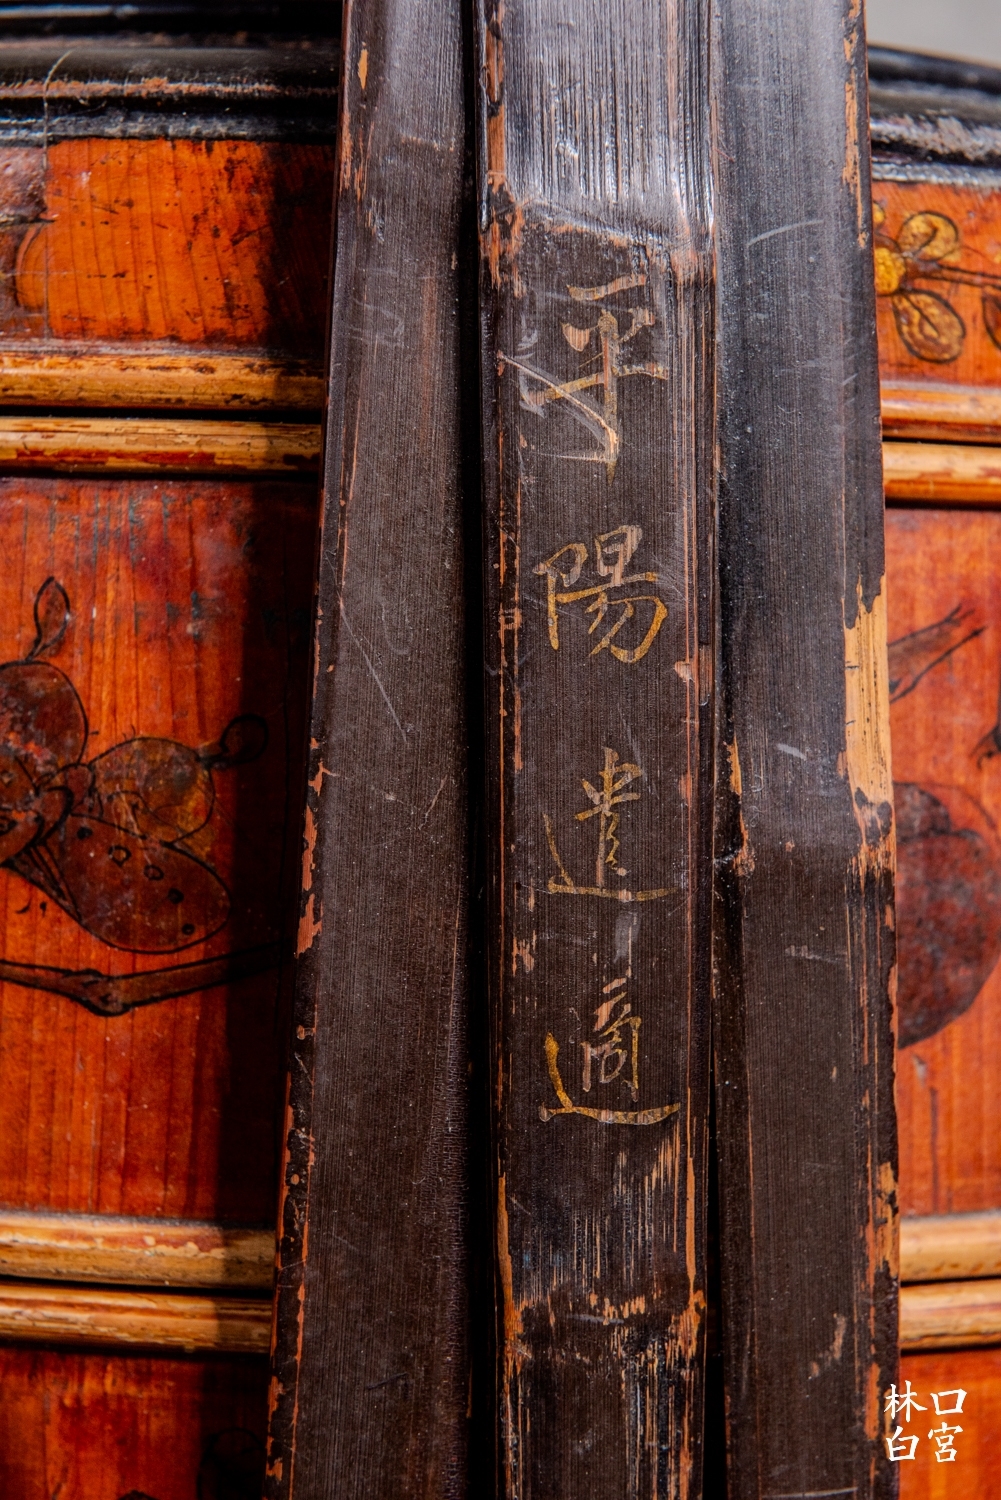 平陽遣適
林口
白宮